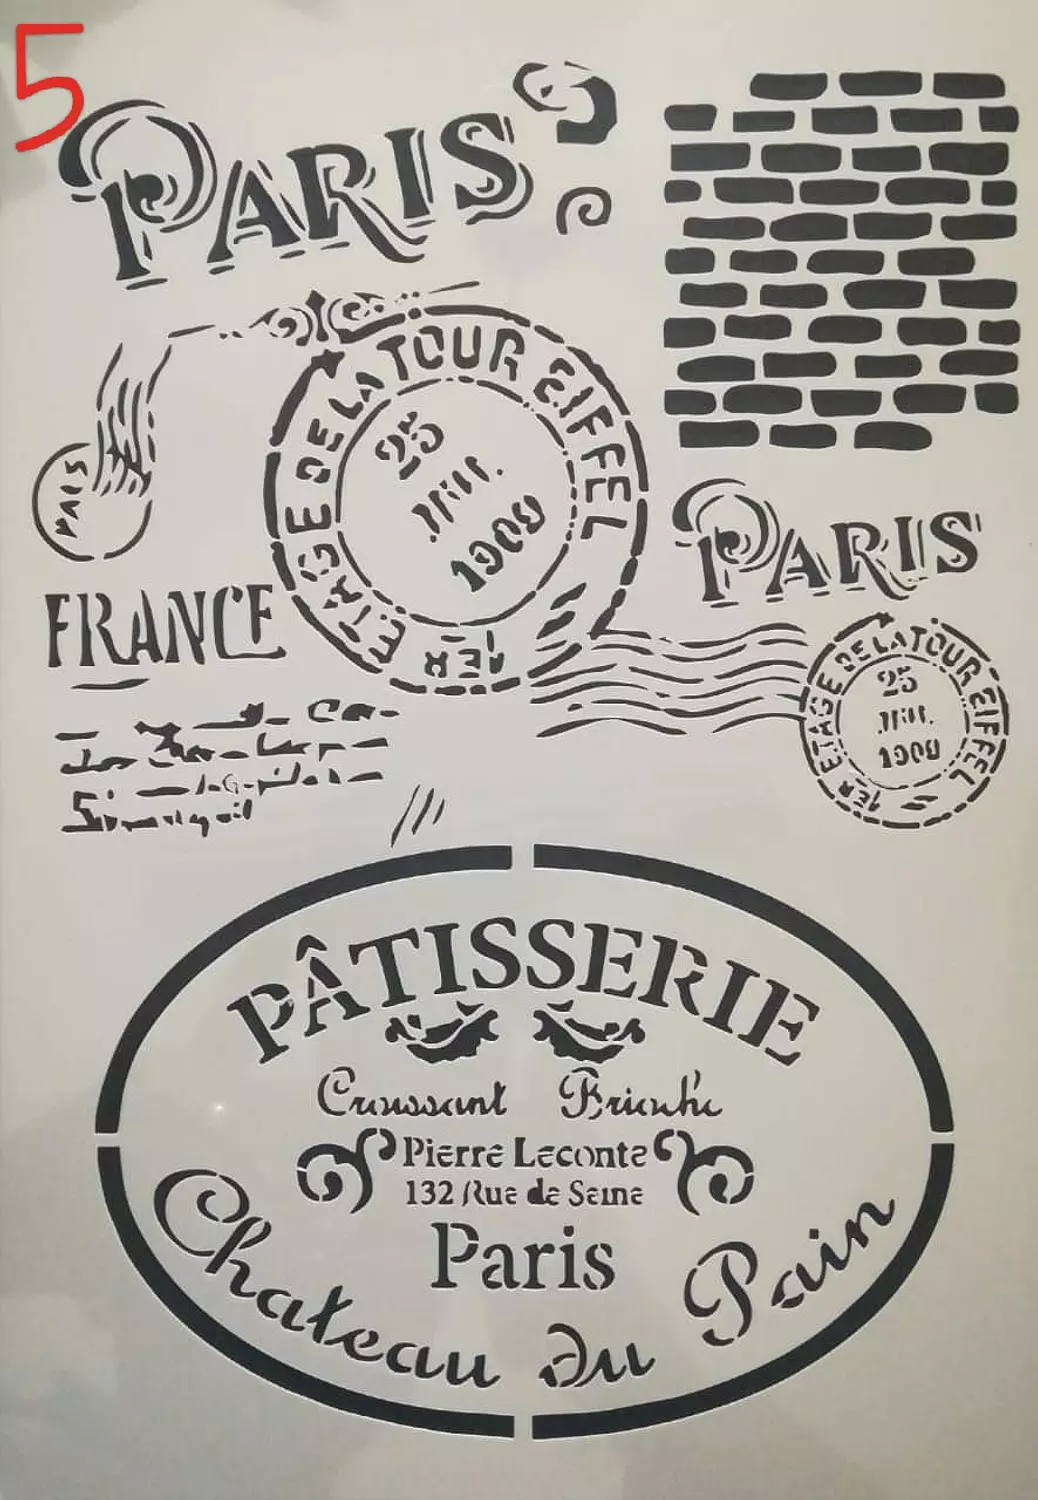 5
PARIS
1ER ETAGE DE LA TOUR EIFFEL
25
1909
PARIS
FRANCE
PARIS
1ER ETAGE DE LA TOUR EIFFEL
25
1909
PÂTISSERIE
Croissant Brioche
Pierre Leconte
132 Rue de Seine
Paris
Chateau du Pain